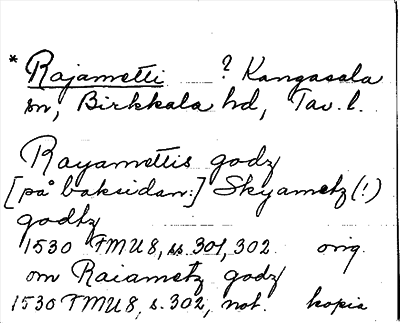 * Rajametti ? Kangasala
sn, Birkkala hd, Tav. l.
Rayamettis godz
[på baksidan:] Skyametz (!)
godtz
1530 FMU 8, ss. 301, 302. orig.
om Raiametz godz
1530 FMU 8, s. 302, not. kopia